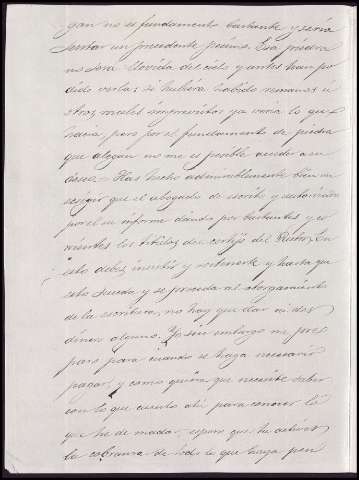 gan no es fundamento bastante y seria
sentar un precedente pésimo. Esa piedra
no sera llovida del cielo y antes han po
dido verla; se hubiera habido
otras inmuebles ya varia lo que
haria, pero por el fundamento de piedra
que alegan no me es posible acceder a su
deseo. = Has hecho admirablemente bien en
exigir que el abogado de escrito y
por él su informe dando por bastantes y co
rrientes los titulos del cortijo del Rubio, En
esto debes insistir y sostenerte y hasta que
esto suceda y se proceda al otorgamiento
de la escritura, no hay que dar ni dos
dineros alguno. Yo sin embargo me pre
paro para cuando se haga necesario
pagar, y como quiera que necesite saber
con lo que cuento ahi para conocer lo
que he de mandar, espero que tu actives
la cobranza de todo lo que haya pen